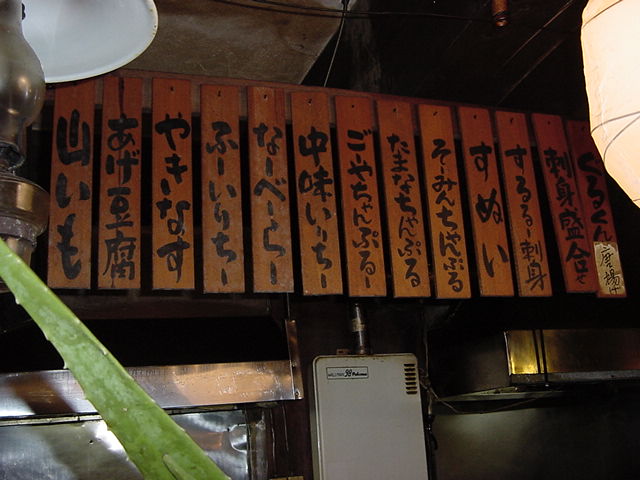 ぐるくん唐揚げ
刺身盛合せ
するるー刺身
すぬい
そーみんちゃんぷる
たまなちゃんぷる
ごーやちゃんぷるー
中味いりちー
なーべーらー
ふーいりちー
やきなす
あげ豆腐
山いも